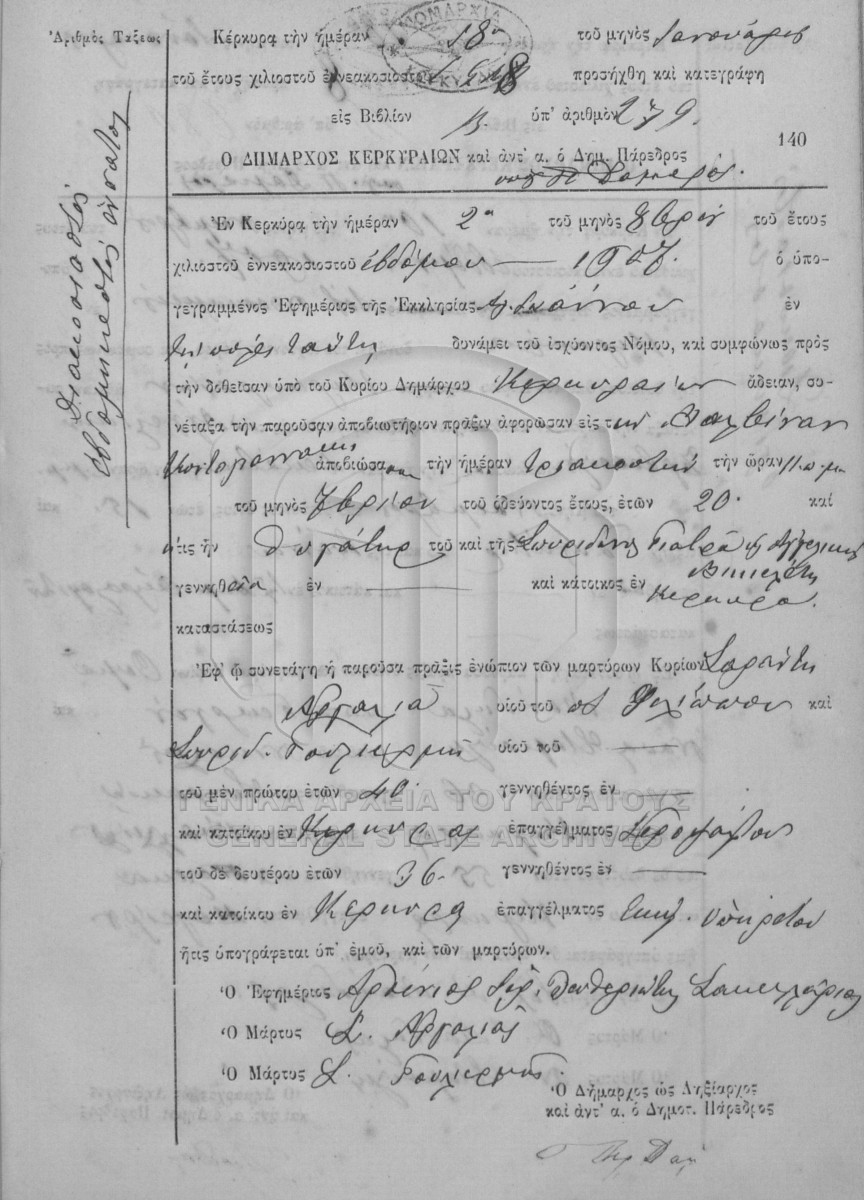 Ἀριθμὸς Τάξεως
Διακοσιοστὸς
ἑβδομηκοστὸς ἔννατος
Κέρκυρα τὴν ἡμέραν 18ην τοῦ μηνὸς Ἰανουάριο
τοῦ ἔτους χιλιοστοῦ ἐννεακοσιοστοῦ προσήχθη καὶ κατεγράφη
εἰς Βιβλίον Β. ὑπ' ἀριθμὸν 279.
140
Ὁ ΔΗΜΑΡΧΟΣ ΚΕΡΚΥΡΑΙΩΝ καὶ ἀντ' α. ὁ Δημ. Πάρεδρος
Ἐν Κερκύρᾳ τὴν ἡμέραν 2α τοῦ μηνὸς 8βρίου τοῦ ἔτους
χιλιοστοῦ ἐννεακοσιοστοῦ ἑβδόμου — 1907. ὁ ὑπο-
γεγραμμένος Ἐφημέριος τῆς Ἐκκλησίας Ἁγ. Ἰωάννου ἐν
τῇ πόλει ταύτῃ δυνάμει τοῦ ἰσχύοντος Νόμου, καὶ συμφώνως πρὸς
τὴν δοθεῖσαν ὑπὸ τοῦ Κυρίου Δημάρχου Κερκυραίων ἄδειαν, συ-
νέταξα τὴν παροῦσαν ἀποβιωτήριον πρᾶξιν ἀφορῶσαν εἰς τὴν
ἀποβιώσασαν τὴν ἡμέραν τριακοστὴν τὴν ὥραν 11 π.μ.
τοῦ μηνὸς 7βρίου τοῦ ὁδεύοντος ἔτους, ἐτῶν 20. καὶ
ἥτις ἦν θυγάτηρ τοῦ καὶ τῆς Σπυρίδωνος Γιατρᾶ καὶ Ἀγγελικῆς
γεννηθεῖσα ἐν — καὶ κάτοικος ἐν Κερκύρᾳ.
καταστάσεως
Ἐφ' ᾧ συνετάγη ἡ παροῦσα πρᾶξις ἐνώπιον τῶν μαρτύρων Κυρίων Σαράντη
Ἀργαλιᾶ υἱοῦ τοῦ ποτὲ Φιλίππου καὶ
Σπυρίδ. Γουλιέρμη υἱοῦ τοῦ —
τοῦ μὲν πρώτου ἐτῶν 40. γεννηθέντος ἐν —
ΓΕΝΙΚΑ ΑΡΧΕΙΑ ΤΟΥ ΚΡΑΤΟΥΣ
καὶ κατοίκου ἐν Κερκύρᾳ ἐπαγγέλματος Ἱεροψάλτου
GENERAL STATE ARCHIVES
τοῦ δὲ δευτέρου ἐτῶν 36. γεννηθέντος ἐν —
καὶ κατοίκου ἐν Κερκύρᾳ ἐπαγγέλματος Ἐκκλ. ὑπηρέτου
ἥτις ὑπογράφεται ὑπ' ἐμοῦ, καὶ τῶν μαρτύρων.
Ὁ Ἐφημέριος Ἀρσένιος Σακελλάριος
Ὁ Μάρτυς Σ. Ἀργαλιᾶς
Ὁ Μάρτυς Σ. Γουλιέρμης.
Ὁ Δήμαρχος ὡς Ληξίαρχος
καὶ ἀντ' α. ὁ Δημοτ. Πάρεδρος